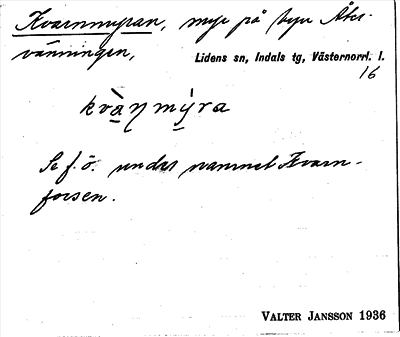 Kvarnmyran, myr på byn Åter-
vänningen, Lidens sn, Indals tg, Västernorrl. l.
16
kvὰƞmýra
Se f. ö. under namnet Kvarn-
forsen.
VALTER JANSSON 1936